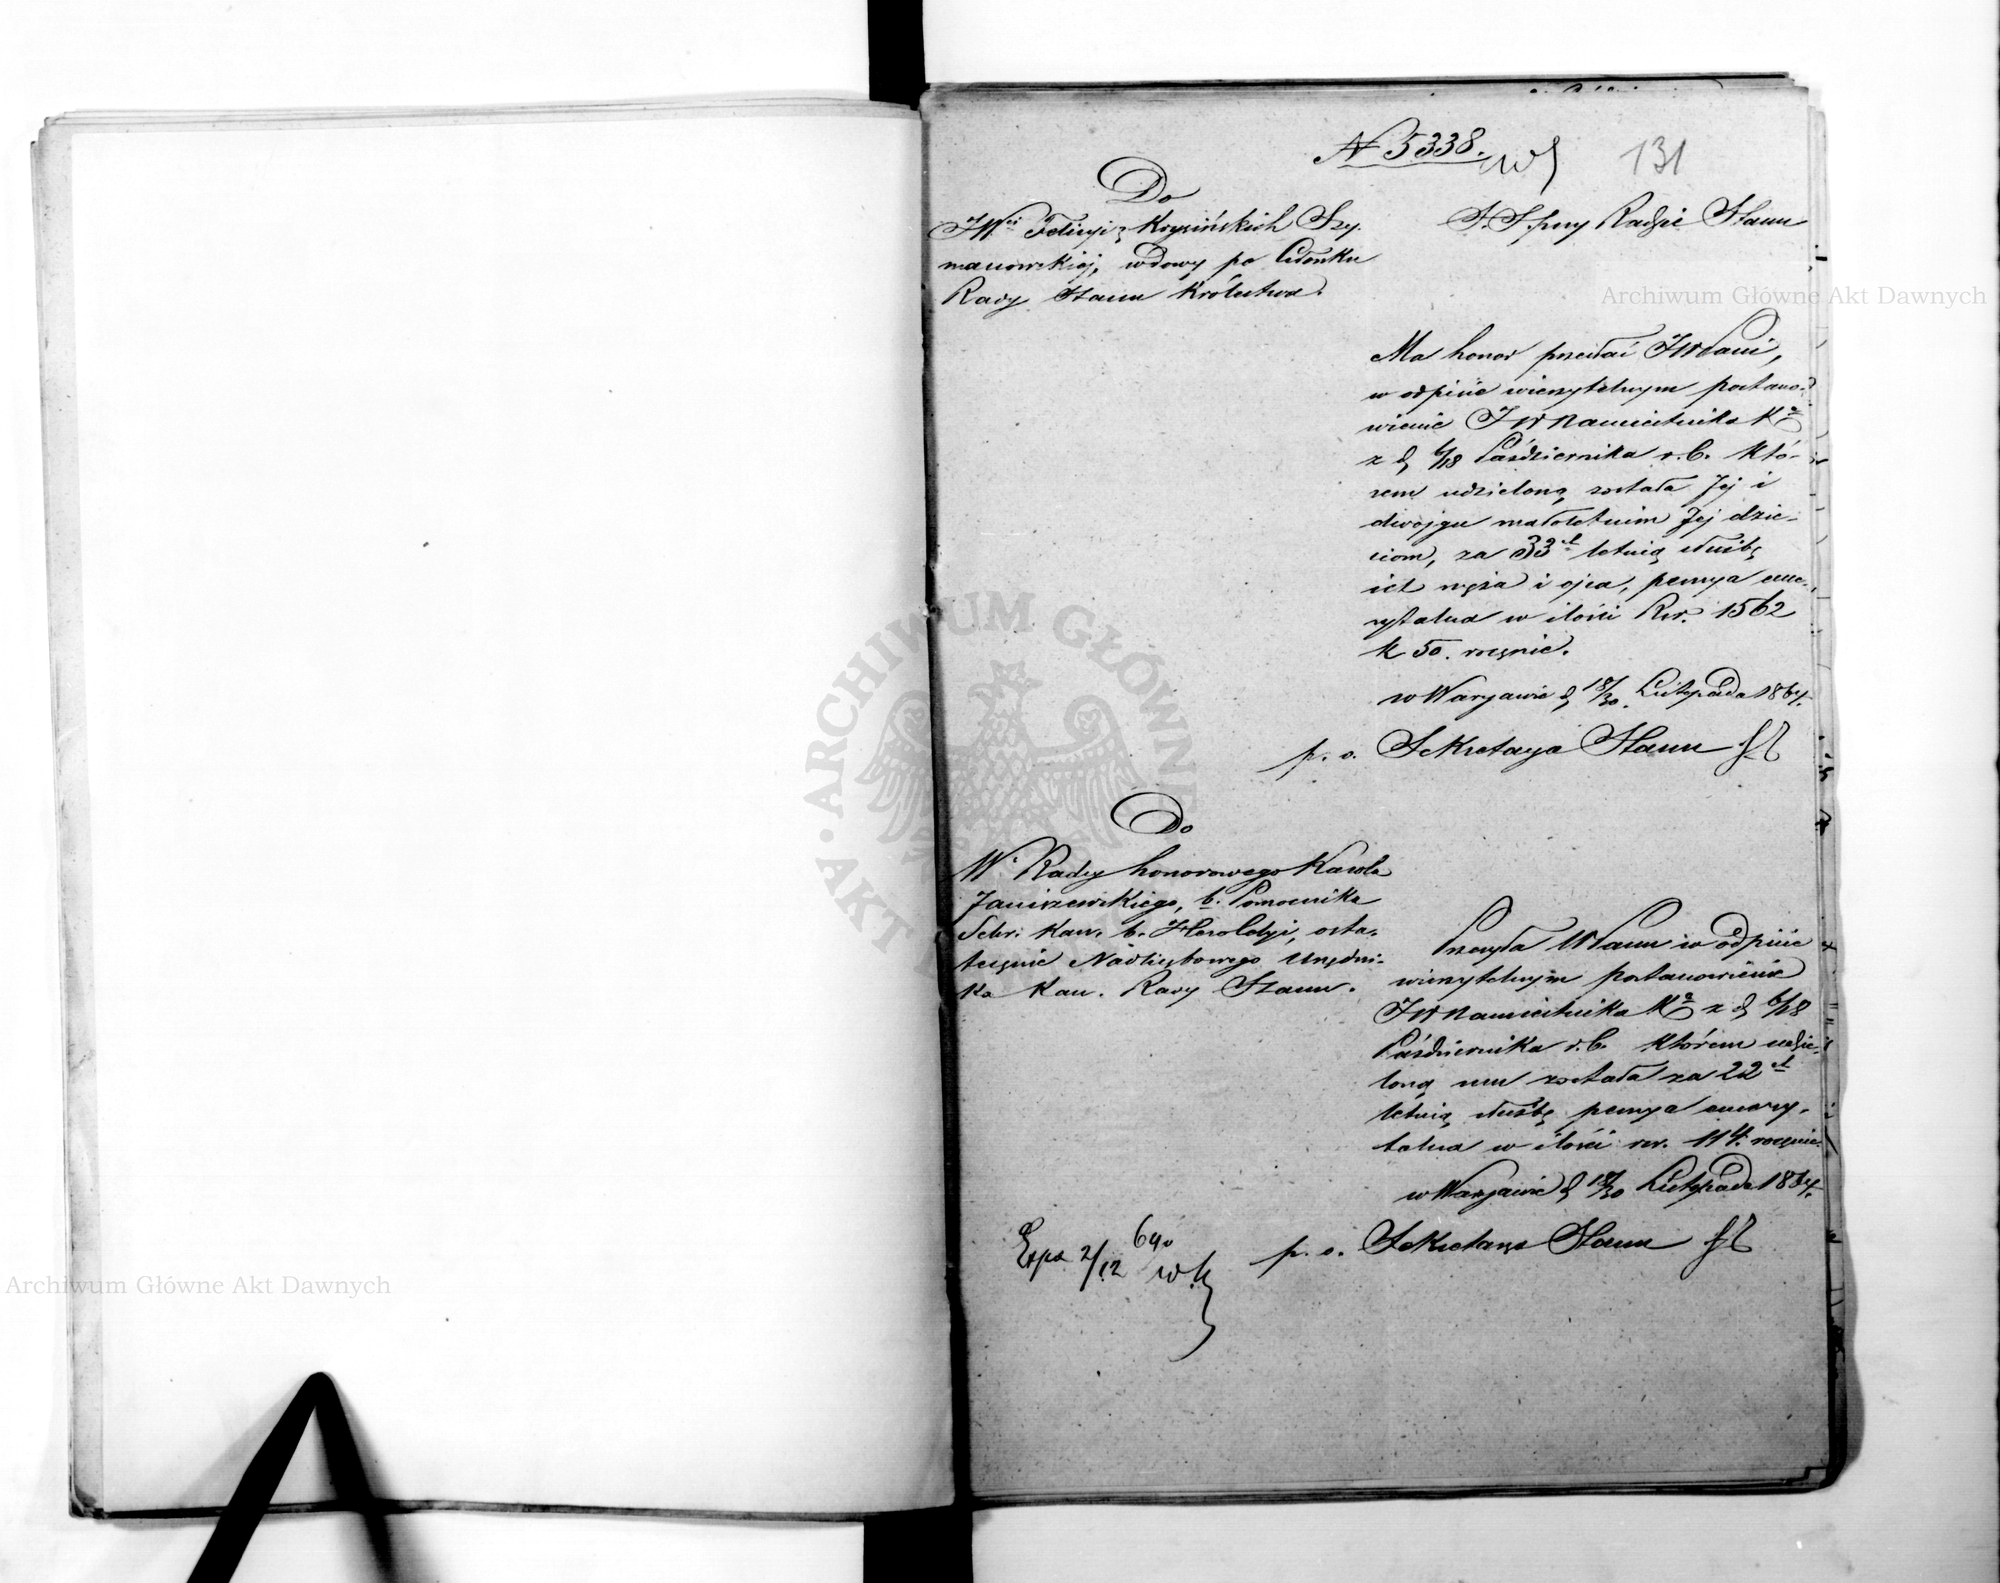 N 5338.
131
Do
JWej Felicyi z Krysińskich Szy-
manowskiej, wdowy po Członku
Rady Stanu Królestwa.
S. S. przy Radzie Stanu
Ma honor przesłać JWPani,
w odpisie wierzytelnym postano-
wienie JW Namiestnika Kr
z d. 6/18 Października r. b. któ-
rem udzieloną została Jej i
dwojgu małoletnim Jej dzie-
ciom, za 33 letnią służbę
ich męża i ojca, pensya eme-
rytalna w ilości Rsr. 1562
k 50. rocznie.
w Warszawie d. 18/30. Listopada 1864.
p. o. Sekretarza Stanu
Do
W. Radcy honorowego Karola
Janiszewskiego, b. Pomocnika
Sekr. Kan. b. Heroldyi, osta-
tecznie Nadliczbowego Urzędni-
ka Kan. Rady Stanu.
Przesyła WPanu w odpisie
wierzytelnym postanowienie
JW Namiestnika Kr z d. 6/18
Października r. b. którem udzie-
loną mu została za 22
letnią służbę pensya emery-
talna w ilości rsr. 114. rocznie.
w Warszawie d. 18/30 Listopada 1864.
p. o. Sekretarza Stanu
Exp. 2/12 64
Archiwum Główne Akt Dawnych
Archiwum Główne Akt Dawnych
ARCHIWUM GŁÓWNE
AKT